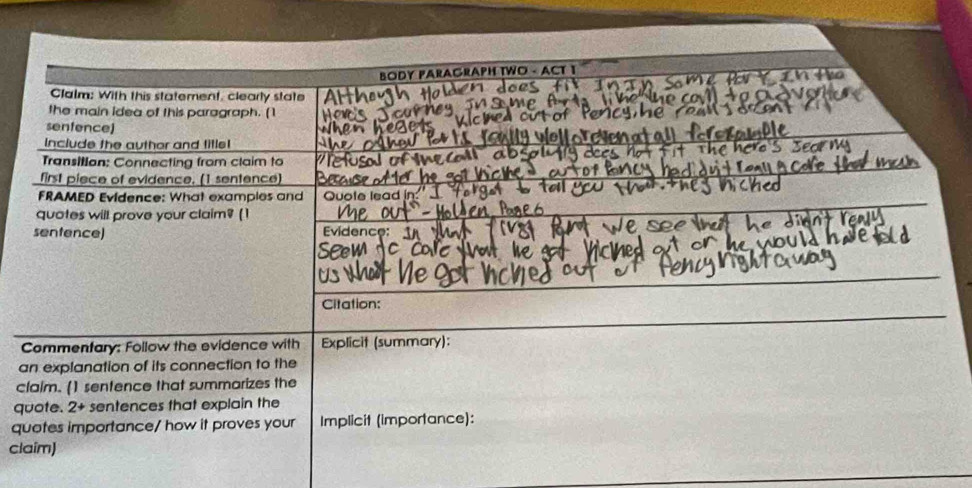 BODY PARAGRAPH TWO - ACT 1
Claim: With this statement, clearly state
the main idea of this paragraph. (1
sentence)
Include the author and title!
Although Holden does fit In In some Part In the
when he gets kicked out of Pencey, he
Transition: Connecting from claim to
first piece of evidence. (1 sentence)
refusal of the call absolutly does not fit The
Because after he got kicked out of Pency he didn't really care that much
FRAMED Evidence: What examples and
quotes will prove your claim? (1
sentence)
Quote lead in: "I forgot to tell you that. they kicked
me out" - Holden Page 6
Evidence: In that first Part we see that he didn't really
seem to care that he got kicked out or he would have told
us that he got kicked out of Pency right away
Citation:
Commentary: Follow the evidence with
an explanation of its connection to the
claim. (1 sentence that summarizes the
quote. 2+ sentences that explain the
quotes importance/ how it proves your
claim)
Explicit (summary):
Implicit (importance):